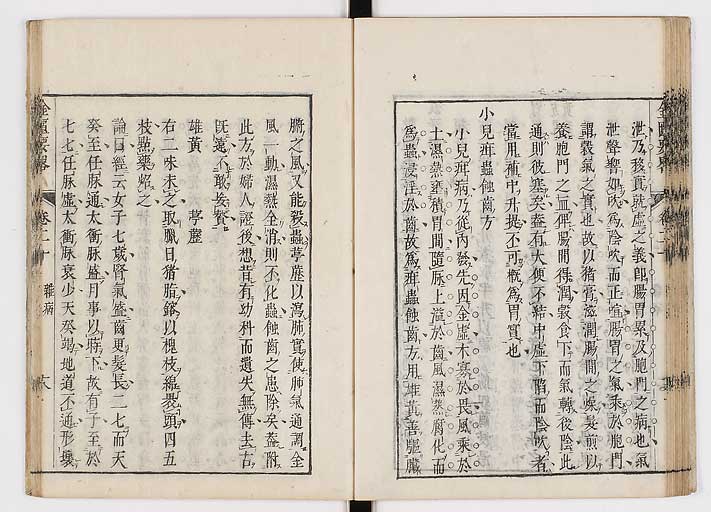 泄乃後真然虛之義卽腸胃累及胞門之病也氣
泄聲響如吹爲陰吹而正喧腸胃之氣乘於胞門
謂穀氣之實也故以猪膏滋潤腸間之燥髮煎以
養胞門之血俾腸間得潤穀食下而氣轉後陰此
通則彼塞矣蓋有大便不結中虛下陷而陰吹者
當用補中升提不可概爲胃實也
小兒疳蟲蝕齒方
小兒疳病乃從內發先因金虛木寡於畏風乘於
土濕熱壅積胃間隨厥上溢於齒風濕蒸腐化而
爲蟲浸淫於齒故爲疳蟲蝕齒方用雄黃善驅臟
腑之風又能殺蟲葶藶以瀉肺實使肺氣通調金
風一動濕熱全消則不化蟲蝕齒之患除矣蓋附
此方於婦人證後想昔有幼科而遺失無傳去古
旣遠不敢妄贅
雄黃 葶藶
右二味末之取臘日猪脂鎔以槐枝綿裹頭四五
枝點藥烙之
論曰經云女子七歲腎氣盛齒更髮長二七而天
癸至任脉通太衝脉盛月事以時下故有子至於
七七任脉虛太衝脉衰少天癸竭地道不通形壞
金匱要畧 卷二十 雜病